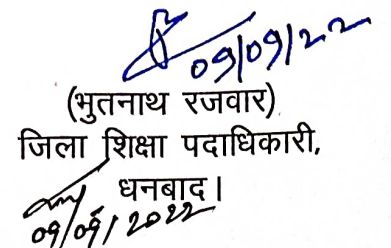 09/09/22
(भुतनाथ रजवार)
जिला शिक्षा पदाधिकारी,
धनबाद।
09/09/2022